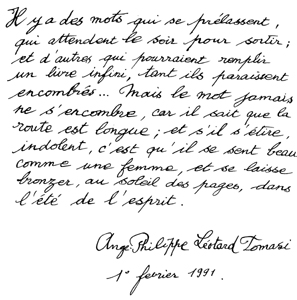 Il y a des mots qui se prélassent,
qui attendent le soir pour sortir ;
et d'autres qui pourraient remplir
un livre infini, tant ils paraissent
encombrés... Mais le mot jamais
ne s'encombre, car il sait que la
route est longue ; et s'il s'étire,
indolent, c'est qu'il se sent beau
comme une femme, et se laisse
bronzer, au soleil des pages, dans
l'été de l'esprit.
Ange-Philippe Léotard Tomasi
1° fevrier 1991.